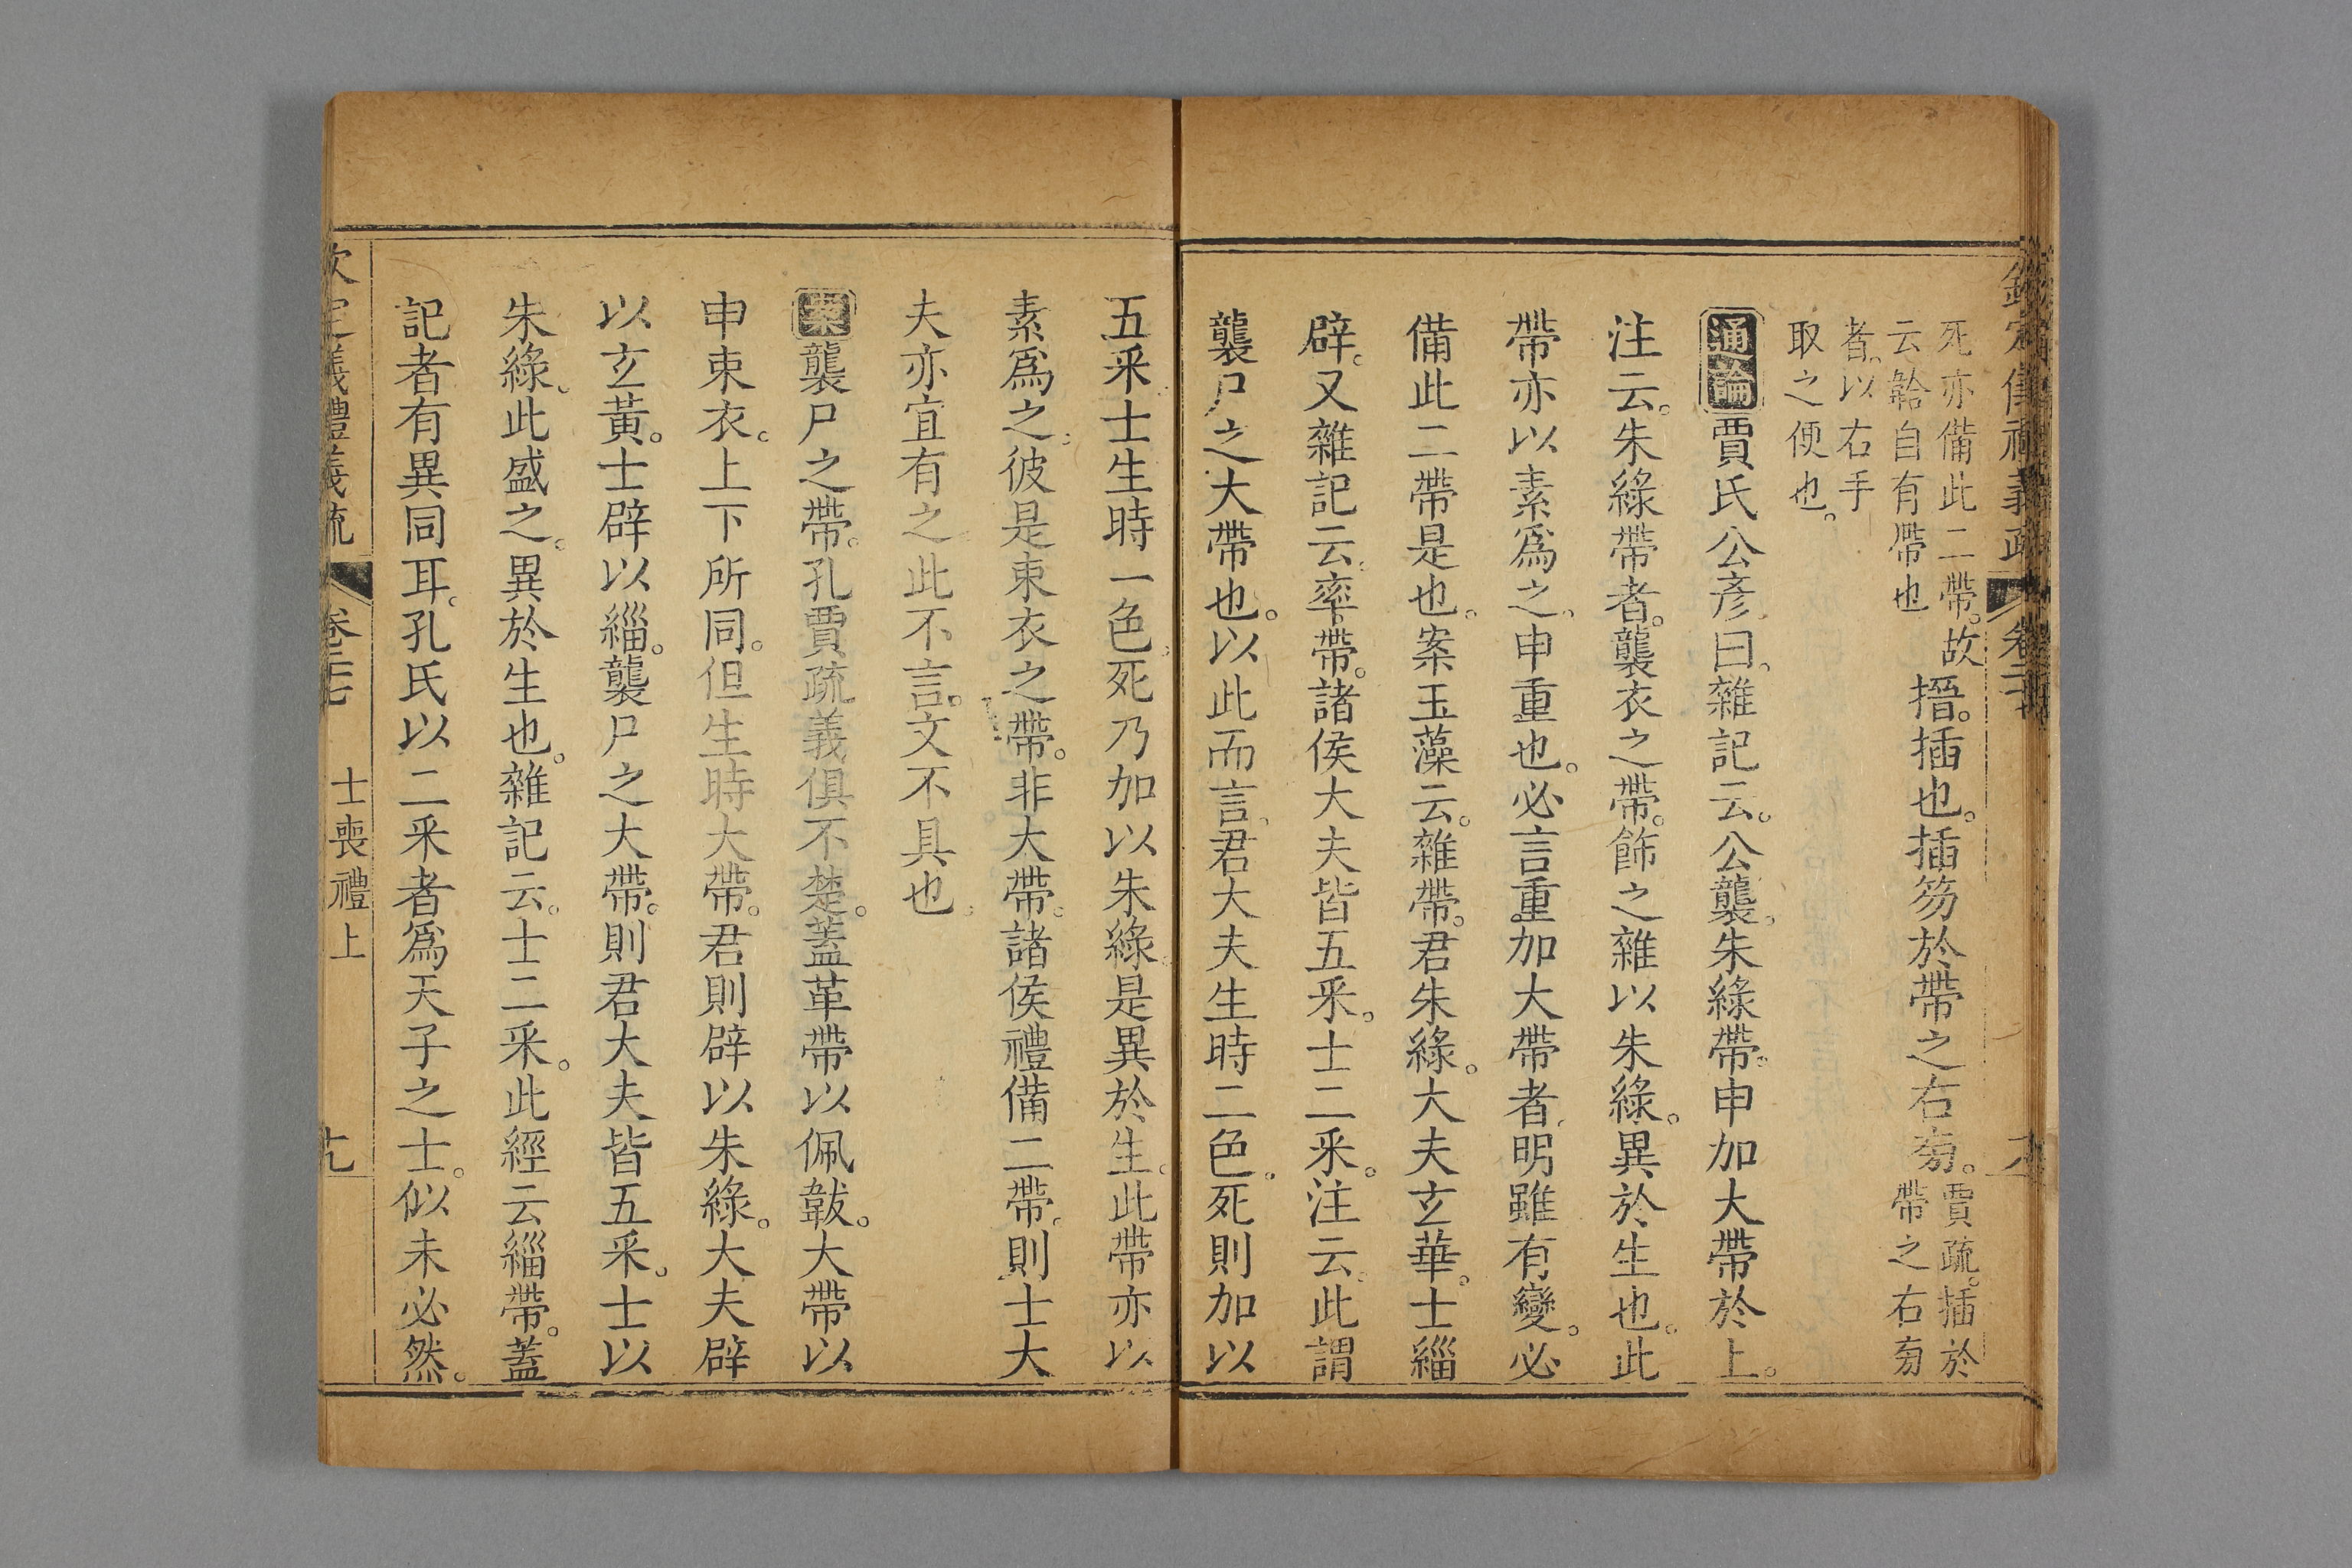 死亦備此二帶。故
云韐自有帶也
搢。插也。插笏於帶之右旁。
賈疏。插於
帶之右旁
者。以右手
取之便也。
通論賈氏公彥曰。雜記云。公襲。朱綠帶。申加大帶於上。
注云。朱綠帶者。襲衣之帶。飾之雜以朱綠。異於生也。此
帶亦以素爲之。申重也。必言重加大帶者。明雖有變。必
備此二帶是也。案玉藻云。雜帶。君朱綠。大夫玄華。士緇
辟。又雜記云。率帶。諸侯大夫皆五采。士二采。注云。此謂
襲尸之大帶也。以此而言。君大夫生時二色。死則加以
五采士生時一色。死乃加以朱綠。是異於生。此帶亦以
素爲之。彼是束衣之帶。非大帶。諸侯禮備二帶。則士大
夫亦宜有之此不言。文不具也。
案襲尸之帶。孔賈疏義俱不楚。蓋革帶以佩韍。大帶以
申束衣。上下所同。但生時大帶。君則辟以朱綠。大夫辟
以玄黃。士辟以緇。襲尸之大帶。則君大夫皆五采。士以
朱綠。此盛之。異於生也。雜記云。士二采。此經云緇帶。蓋
記者有異同耳。孔氏以二采者爲天子之士。似未必然。
欽定儀禮義疏
卷二十七
士喪禮上
十九